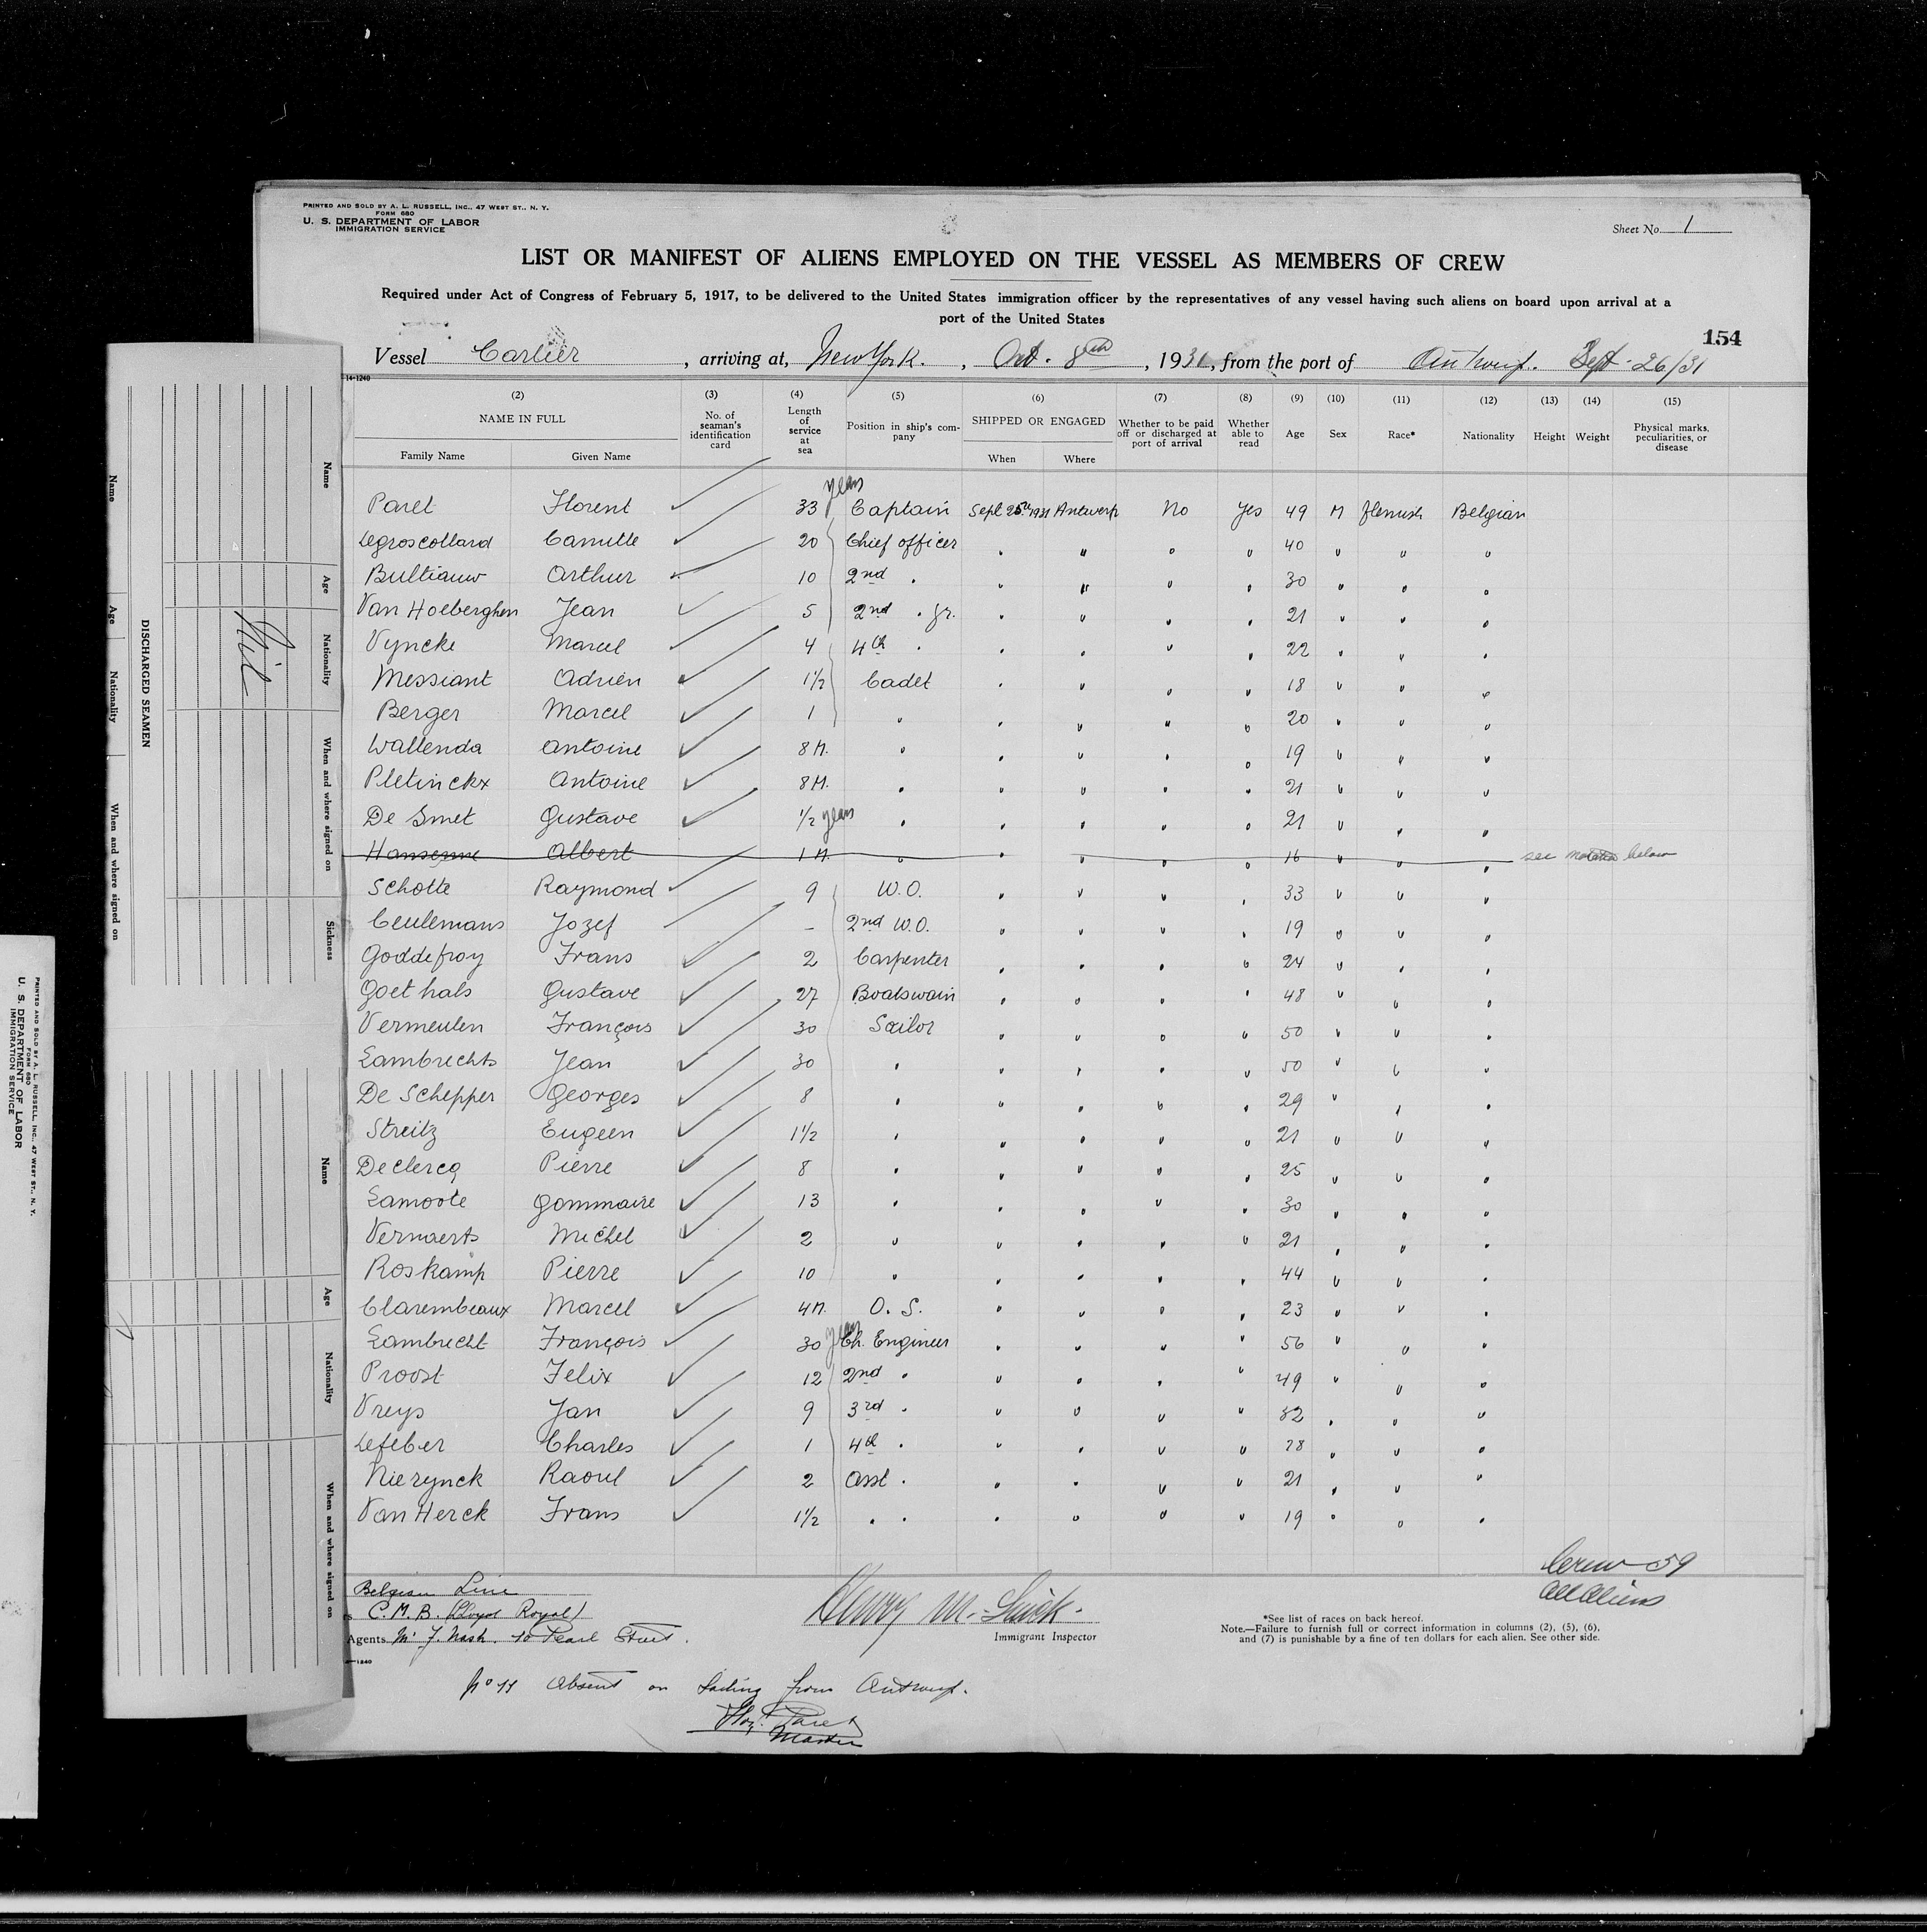 PRINTED AND SOLD BY A. L. RUSSELL, INC., 47 WEST ST., N. Y.
FORM 680
U. S. DEPARTMENT OF LABOR
IMMIGRATION SERVICE
Sheet No. 1
LIST OR MANIFEST OF ALIENS EMPLOYED ON THE VESSEL AS MEMBERS OF CREW
Required under Act of Congress of February 5, 1917, to be delivered to the United States immigration officer by the representatives of any vessel having such aliens on board upon arrival at a
port of the United States
154
Vessel Carlier, arriving at, New York., Oct. 8th, 1931, from the port of Antwerp. Sept. 26/31
14-1240
(2) (3) (4) (5) (6) (7) (8) (9) (10) (11) (12) (13) (14) (15)
NAME IN FULL
Family Name Given Name
No. of seaman's identification card
Length of service at sea
Position in ship's company
SHIPPED OR ENGAGED
When Where
Whether to be paid off or discharged at port of arrival
Whether able to read
Age Sex Race* Nationality Height Weight
Physical marks, peculiarities, or disease
years
Paret Florent 33 Captain Sept 25th 1931 Antwerp No Yes 49 M Flemish Belgian
Legroscollard Camille 20 Chief officer " " " " 40 " " "
Bultiauw Arthur 10 2nd " " " " " 30 " " "
Van Hoeberghen Jean 5 2nd " jr. " " " " 21 " " "
Vyncke Marcel 4 4th " " " " " 22 " " "
Messiant Adrien 1½ Cadet " " " " 18 " " "
Berger Marcel 1 " " " " " 20 " " "
Wallenda Antoine 8 M. " " " " " 19 " " "
Pletinckx Antoine 8 M. " " " " " 21 " " "
De Smet Gustave ½ years " " " " " 21 " " "
Hansenne Albert 1 M. " " " " " 16 " " " see below
Schotte Raymond 9 W.O. " " " " 33 " " "
Ceulemans Jozef - 2nd W.O. " " " " 19 " " "
Goddefroy Frans 2 Carpenter " " " " 24 " " "
Goethals Gustave 27 Boatswain " " " " 48 " " "
Vermeulen François 30 Sailor " " " " 50 " " "
Lambrechts Jean 30 " " " " " 50 " " "
De Schepper Georges 8 " " " " " 29 " " "
Streitz Eugeen 1½ " " " " " 21 " " "
Declercq Pierre 8 " " " " " 25 " " "
Lamoote Gommaire 13 " " " " " 30 " " "
Vernaerts Michel 2 " " " " " 21 " " "
Roskamp Pierre 10 " " " " " 44 " " "
Clarembeaux Marcel 4 M. O. S. " " " " 23 " " "
Lambrecht François 30 years Ch. Engineer " " " " 56 " " "
Proost Felix 12 2nd " " " " " 49 " " "
Vreys Jan 9 3rd " " " " " 32 " " "
Lefeber Charles 1 4th " " " " " 28 " " "
Nierynck Raoul 2 Asst " " " " " 21 " " "
Van Herck Frans 1½ " " " " " " 19 " " "
Crew 59
All Aliens
Belgian Line
C. M. B. (Lloyd Royal)
Agents Mr J. Nash. 10 Pearl Street.
Henry M.
Immigrant Inspector
*See list of races on back hereof.
Note.—Failure to furnish full or correct information in columns (2), (5), (6),
and (7) is punishable by a fine of ten dollars for each alien. See other side.
No 11 Absent on Sailing from Antwerp.
Flor. Paret
Master
DISCHARGED SEAMEN
Name Age Nationality When and where signed on
Name Age Nationality When and where signed on Sickness
Nil
Name Age Nationality When and where signed on
PRINTED AND SOLD BY A. L. RUSSELL, INC., 47 WEST ST., N. Y.
FORM 680
U. S. DEPARTMENT OF LABOR
IMMIGRATION SERVICE